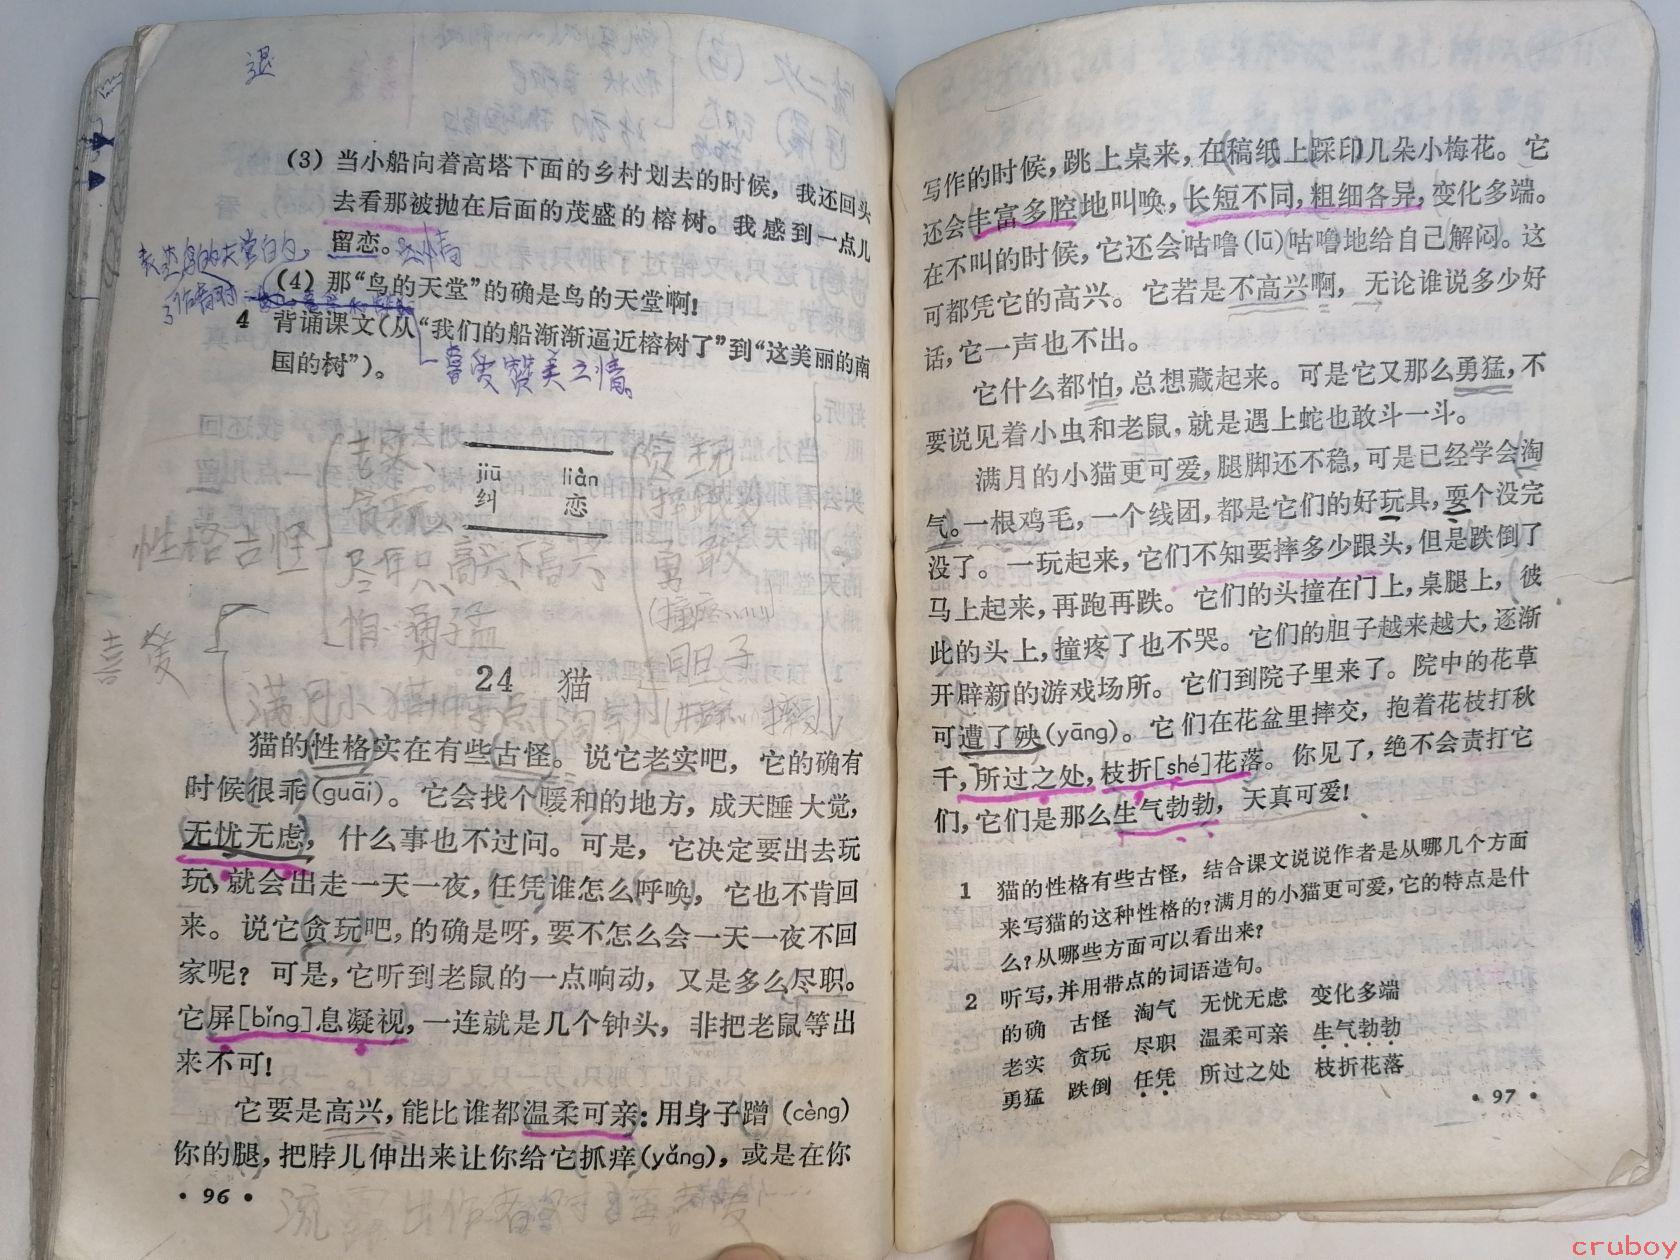 退
(3) 当小船向着高塔下面的乡村划去的时候，我还回头
去看那被抛在后面的茂盛的榕树。我感到一点儿
留恋。
(4) 那“鸟的天堂”的确是鸟的天堂啊！
4 背诵课文(从“我们的船渐渐逼近榕树了”到“这美丽的南
国的树”)。
喜爱赞美之情
jiū liàn
纠 恋
老实、
贪玩、
性格古怪
尽职、高兴、不高兴
怕 勇猛
勇敢
胆子
喜爱
24 猫
猫的性格实在有些古怪。说它老实吧，它的确有
时候很乖(guāi)。它会找个暖和的地方，成天睡大觉，
无忧无虑，什么事也不过问。可是，它决定要出去玩
玩，就会出走一天一夜，任凭谁怎么呼唤，它也不肯回
来。说它贪玩吧，的确是呀，要不怎么会一天一夜不回
家呢？可是，它听到老鼠的一点响动，又是多么尽职。
它屏[bǐng]息凝视，一连就是几个钟头，非把老鼠等出
来不可！
它要是高兴，能比谁都温柔可亲：用身子蹭(cèng)
你的腿，把脖儿伸出来让你给它抓痒(yǎng)，或是在你
• 96 •
写作的时候，跳上桌来，在稿纸上踩印几朵小梅花。它
还会丰富多腔地叫唤，长短不同，粗细各异，变化多端。
在不叫的时候，它还会咕噜(lū)咕噜地给自己解闷。这
可都凭它的高兴。它若是不高兴啊，无论谁说多少好
话，它一声也不出。
它什么都怕，总想藏起来。可是它又那么勇猛，不
要说见着小虫和老鼠，就是遇上蛇也敢斗一斗。
满月的小猫更可爱，腿脚还不稳，可是已经学会淘
气。一根鸡毛，一个线团，都是它们的好玩具，耍个没完
没了。一玩起来，它们不知要摔多少跟头，但是跌倒了
马上起来，再跑再跌。它们的头撞在门上，桌腿上，彼
此的头上，撞疼了也不哭。它们的胆子越来越大，逐渐
开辟新的游戏场所。它们到院子里来了。院中的花草
可遭了殃(yāng)。它们在花盆里摔交，抱着花枝打秋
千，所过之处，枝折[shé]花落。你见了，绝不会责打它
们，它们是那么生气勃勃，天真可爱！
1 猫的性格有些古怪，结合课文说说作者是从哪几个方面
来写猫的这种性格的？满月的小猫更可爱，它的特点是什
么？从哪些方面可以看出来？
2 听写，并用带点的词语造句。
的确 古怪 淘气 无忧无虑 变化多端
老实 贪玩 尽职 温柔可亲 生气勃勃
勇猛 跌倒 任凭 所过之处 枝折花落
• 97 •
cruboy